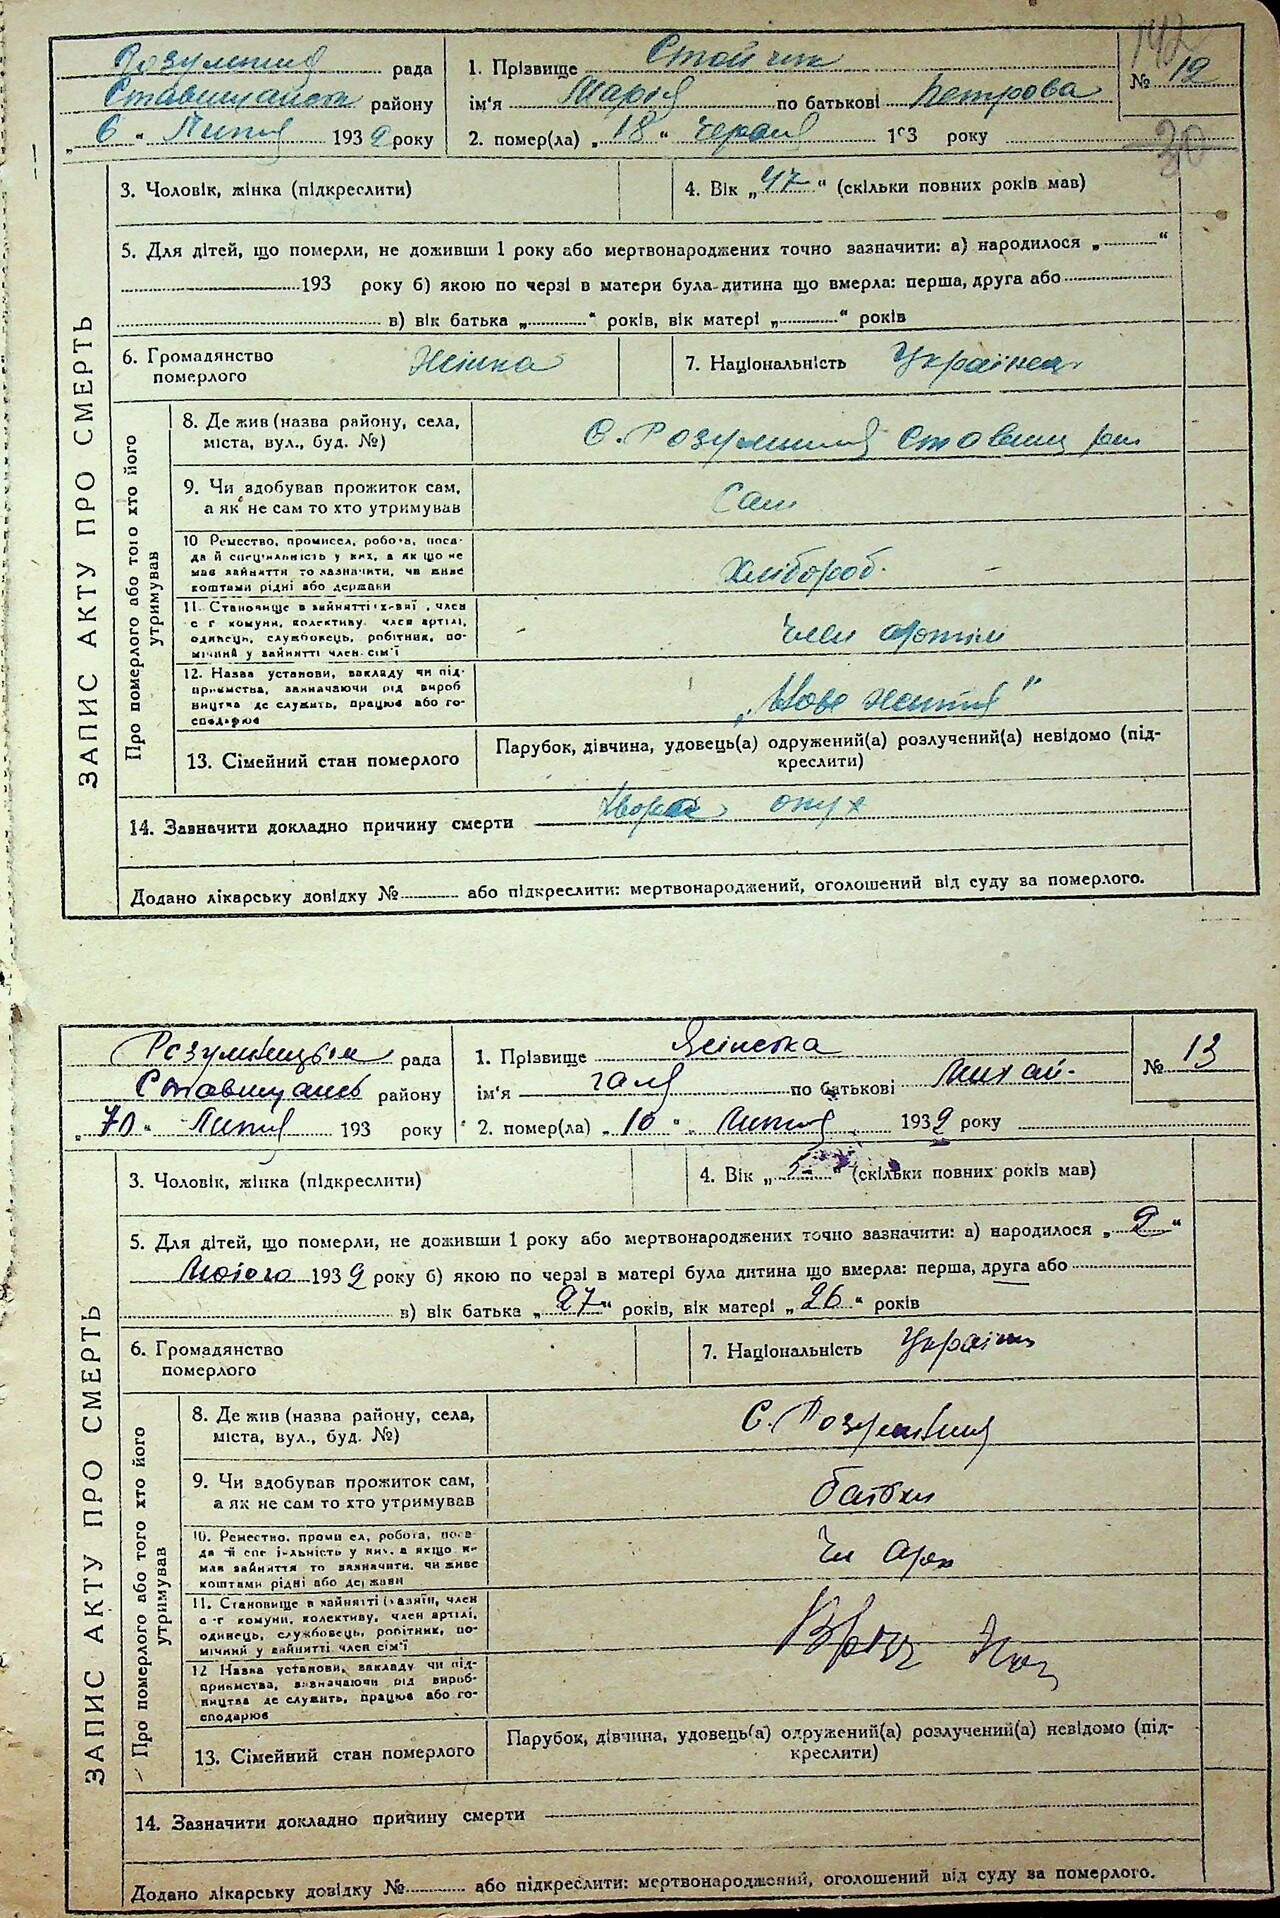 142
Розумниц рада
Ставищанськ району
„ 6 “ Липня 1932 року
1. Прізвище Стойчик
ім'я Марія по батькові Петрова
2. помер(ла) „ 18 “ Червня 193 року
№ 12
30
3. Чоловік, жінка (підкреслити)
4. Вік „ 47 “ (скільки повних років мав)
5. Для дітей, що померли, не доживши 1 року або мертвонароджених точно зазначити: а) народилося „ “
193 року б) якою по черзі в матери була дитина що вмерла: перша, друга або
в) вік батька „ “ років, вік матері „ “ років
6. Громадянство померлого Жінка
7. Національність Українка
ЗАПИС АКТУ ПРО СМЕРТЬ
Про померлого або того хто його утримував
8. Де жив (назва району, села,
міста, вул., буд. №)
С. Розумниця Ставищ рай
9. Чи здобував прожиток сам,
а як не сам то хто утримував
Сам
10 Ремество, промисел, робота, поса-
да й спеціяльність у них, а як що не
мав зайняття то зазначити, чи живе
коштами рідні або держави
Хлібороб.
11. Становище в зайнятті х-зяї, член
с г комуни, колективу член артілі,
одинець, службовець, робітник, по-
мічний у зайнятті член сім'ї
Член артіли
12. Назва установи, закладу чи під-
приємства, зазначаючи рід вироб
ництва де служить, працює або го-
сподарює
„Нове життя“
13. Сімейний стан померлого
Парубок, дівчина, удовець(а) одружений(а) розлучений(а) невідомо (під-
креслити)
14. Зазначити докладно причину смерти опух
Додано лікарську довідку № або підкреслити: мертвонароджений, оголошений від суду за померлого.
Розумницьк рада
Ставищансь району
„ 10 “ Липня 193 року
1. Прізвище
ім'я Галя по батькові Михай-
2. помер(ла) „ 10 “ Липня 1932 року
№ 13
3. Чоловік, жінка (підкреслити)
4. Вік „ 5 “ (скільки повних років мав)
5. Для дітей, що померли, не доживши 1 року або мертвонароджених точно зазначити: а) народилося „ 2 “
Лютого 1932 року б) якою по черзі в матері була дитина що вмерла: перша, друга або
в) вік батька „ 27 “ років, вік матері „ 26 “ років
6. Громадянство
померлого
7. Національність Україн
ЗАПИС АКТУ ПРО СМЕРТЬ
Про померлого або того хто його утримував
8. Де жив (назва району, села,
міста, вул., буд. №)
С. Розумниця
9. Чи здобував прожиток сам,
а як не сам то хто утримував
батьки
10. Ремество, проми ел, робота, поса-
да й спе іяльність у них, а якщо н-
мав зайняття то зазначити, чи живе
коштами рідні або держави
Чл
11. Становище в зайнятті (хазяїн, член
с -г комуни, колективу, член артілі,
одинець, службовець, робітник, по-
мічний у зайнятті член сім'ї
12 Назва установи, закладу чи під-
приємства, зазначаючи рід вироб-
ництва де служить, працює або го-
сподарює
13. Сімейний стан померлого
Парубок, дівчина, удовець(а) одружений(а) розлучений(а) невідомо (під-
креслити)
14. Зазначити докладно причину смерти
Додано лікарську довідку № або підкреслити: мертвонароджений, оголошений від суду за померлого.